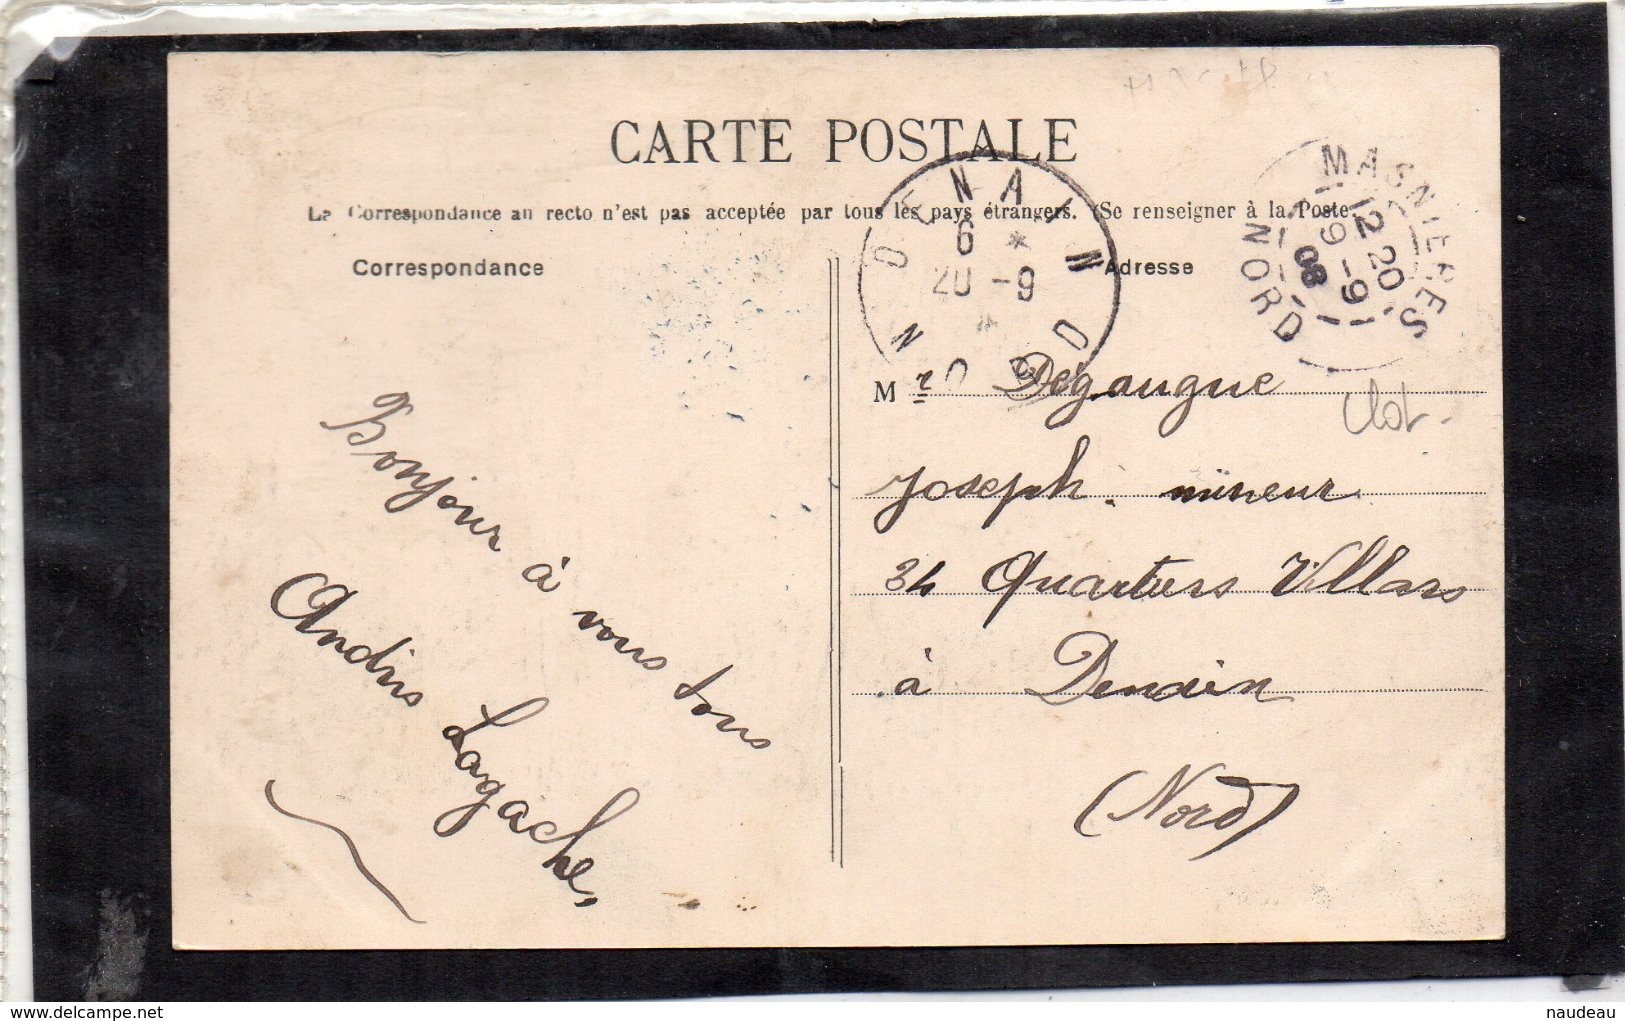 CARTE POSTALE
La Correspondance au recto n'est pas acceptée par tous les pays étrangers. (Se renseigner à la Poste
Correspondance
Adresse
DENAIN
6 *
20 -9
NORD
MASNIERES
12 20
19 -9
08
NORD
Bonjour à vous tous
Lagache
Mr Dégaugue
Joseph. mineur
34 Quartiers Villars
à Denain
(Nord)
delcampe.net
naudeau